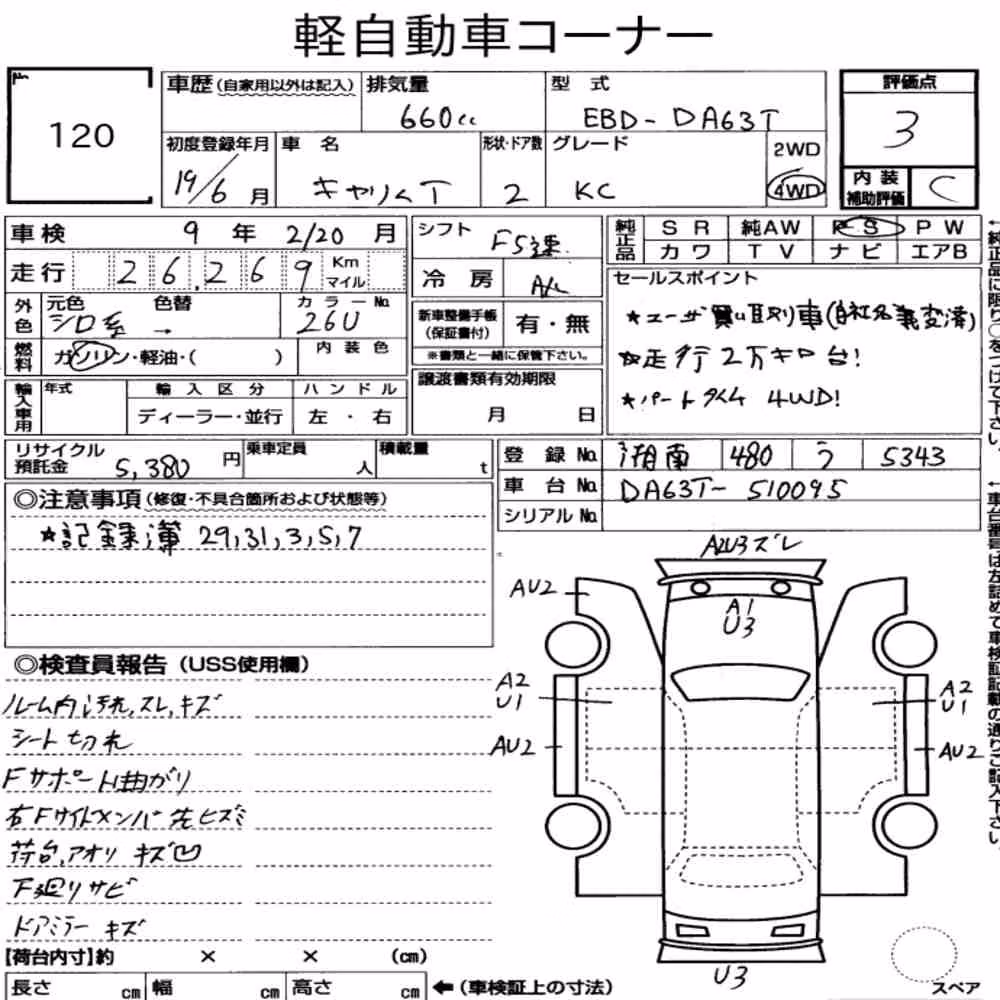 軽自動車コーナー
120
車歴(自家用以外は記入) 排気量 型式 評価点
660cc EBD-DA63T 3
初度登録年月 車名 形状・ドア数 グレード 2WD
19/6月 キャリイT 2 KC 4WD
内装補助評価 C
車検 9年 2/20月
シフト F5速
純正品 SR 純AW PS PW
カワ TV ナビ エアB
走行 26,269 Km マイル
冷房 A/C
セールスポイント
外色 元色 色替 カラーNo.
シロ系 → 26U
新車整備手帳(保証書付) 有・無
※書類と一緒に保管下さい。
★ユーザー買い取り車(自社名義変済)
☆走行2万キロ台!
★パートタイム 4WD!
燃料 ガソリン・軽油・( ) 内装色
譲渡書類有効期限
月 日
輸入車用 年式 輸入区分 ハンドル
ディーラー・並行 左・右
リサイクル預託金 5,380円 乗車定員 人 積載量 t
登録No. 湘南 480 う 5343
車台No. DA63T-510095
シリアルNo.
◎注意事項(修復・不具合箇所および状態等)
★記録簿 29,31,3,5,7
◎検査員報告(USS使用欄)
ルーム内汚れ,スレ,キズ
シート切れ
Fサポート曲がり
右Fサイドメンバー先ヒズミ
荷台,アオリ キズ凹
下廻りサビ
ドアミラーキズ
【荷台内寸】約 × × (cm)
長さ cm 幅 cm 高さ cm ←(車検証上の寸法)
A2U3ズレ
AU2
A1
U3
A2
U1
A2
U1
AU2
AU2
U3
スペア
←純正品に限り○をつけて下さい。
←車台番号は左詰めで車検証記載の通りご記入下さい。